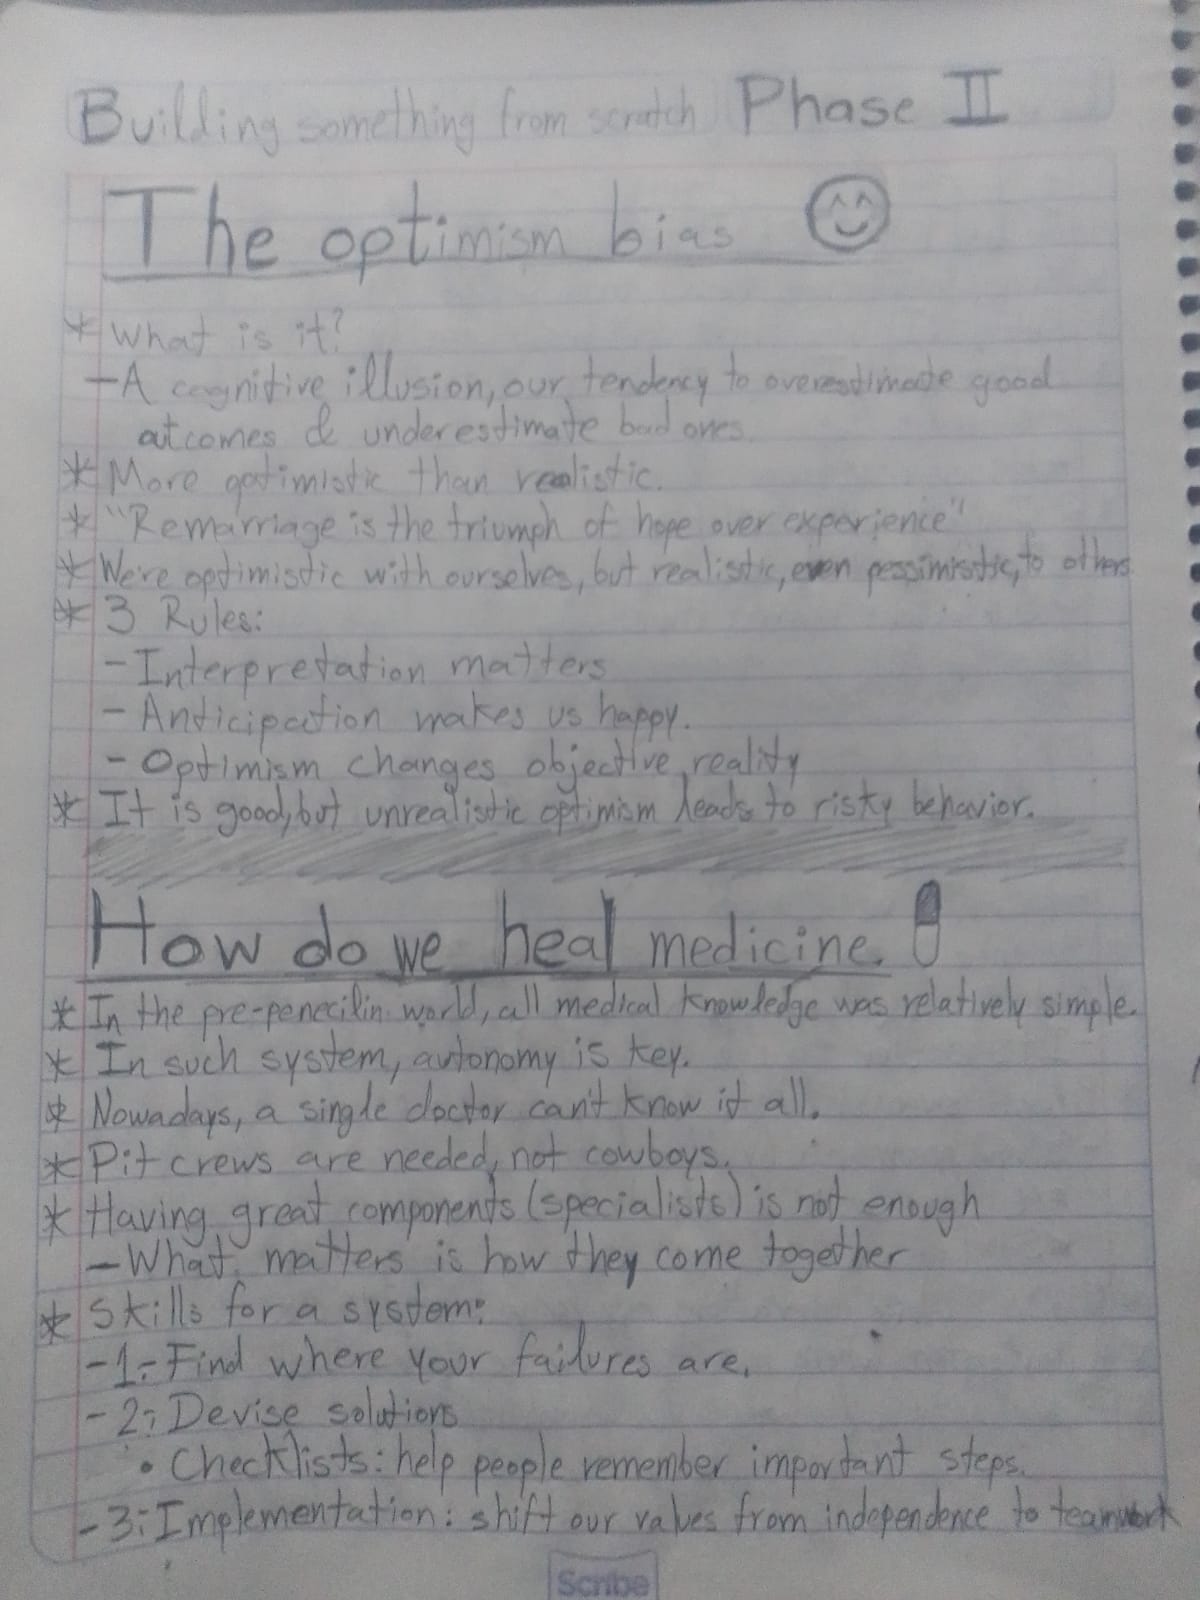 Building something from scratch Phase II
The optimism bias
* What is it?
- A cognitive illusion, our tendency to overestimate good
outcomes & underestimate bad ones.
* More optimistic than realistic.
* "Remarriage is the triumph of hope over experience"
* We're optimistic with ourselves, but realistic, even pessimistic, to others
* 3 Rules:
- Interpretation matters
- Anticipation makes us happy.
- Optimism changes objective reality
* It is good, but unrealistic optimism leads to risky behavior.
How do we heal medicine.
* In the pre-penecilin world, all medical knowledge was relatively simple.
* In such system, autonomy is key.
* Nowadays, a single doctor can't know it all.
* Pit crews are needed, not cowboys.
* Having great components (specialists) is not enough
- What matters is how they come together
* Skills for a system:
- 1.- Find where your failures are.
- 2.- Devise solutions
• Checklists: help people remember important steps.
- 3.- Implementation: shift our values from independence to teamwork
Scribe